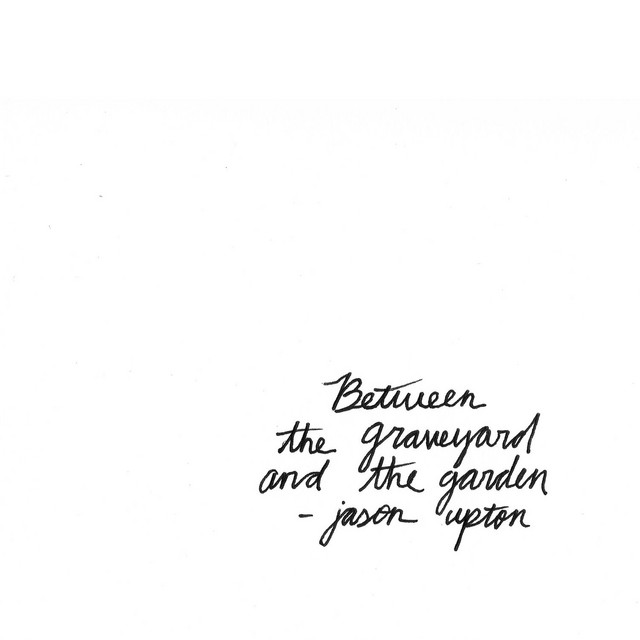 Between
the graveyard
and the garden
- jason upton